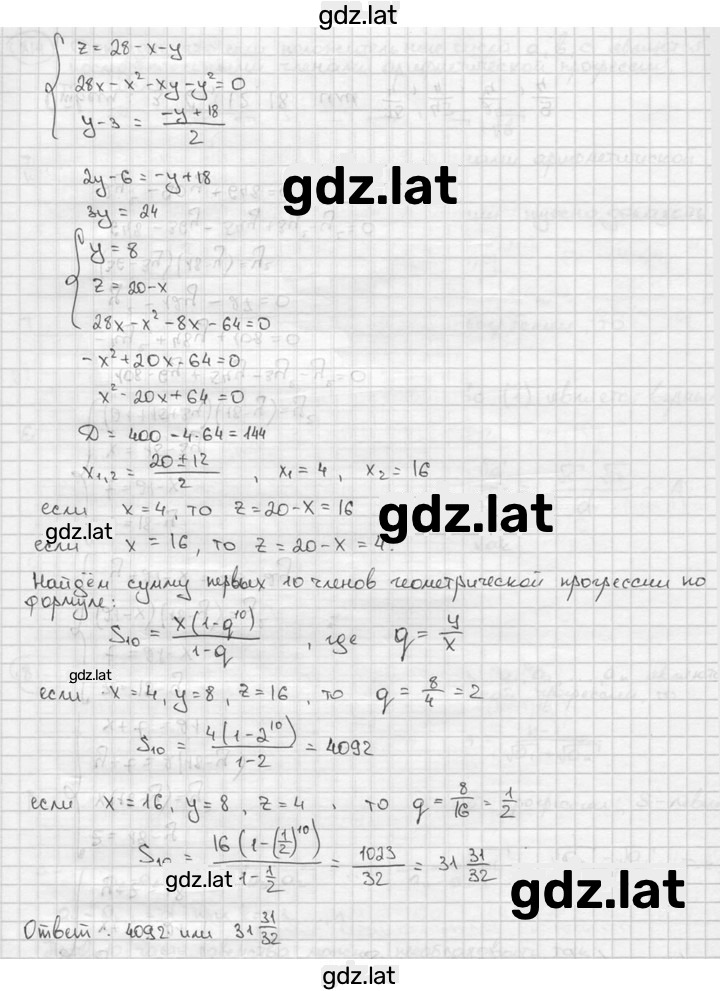 gdz.lat
z = 28 - x - y
28x - x² - xy - y² = 0
y - 3 = (-y + 18)/2
2y - 6 = -y + 18
gdz.lat
3y = 24
y = 8
z = 20 - x
28x - x² - 8x - 64 = 0
-x² + 20x - 64 = 0
x² - 20x + 64 = 0
D = 400 - 4·64 = 144
x₁,₂ = (20 ± 12)/2 , x₁ = 4 , x₂ = 16
если x = 4, то z = 20 - x = 16
gdz.lat
gdz.lat
если x = 16, то z = 20 - x = 4.
Найдём сумму первых 10 членов геометрической прогрессии по
формуле:
S₁₀ = x(1 - q¹⁰)/(1 - q) , где q = y/x
gdz.lat
если x = 4, y = 8, z = 16 , то q = 8/4 = 2
S₁₀ = 4(1 - 2¹⁰)/(1 - 2) = 4092
если x = 16, y = 8, z = 4 , то q = 8/16 = 1/2
S₁₀ = 16(1 - (1/2)¹⁰)/(1 - 1/2) = 1023/32 = 31 31/32
gdz.lat
gdz.lat
Ответ: 4092 или 31 31/32
gdz.lat